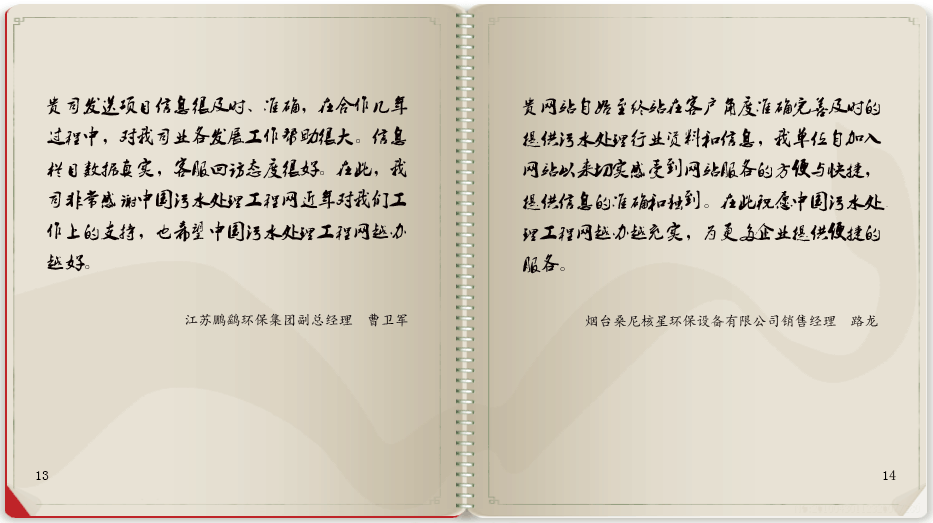 贵司发送项目信息很及时、准确，在合作几年
过程中，对我司业务发展工作帮助很大。信息
栏目数据真实，客服回访态度很好。在此，我
司非常感谢中国污水处理工程网近年对我们工
作上的支持，也希望中国污水处理工程网越办
越好。
江苏鹏鹞环保集团副总经理 曹卫军
13
贵网站自始至终站在客户角度准确完善及时的
提供污水处理行业资料和信息，我单位自加入
网站以来切实感受到网站服务的方便与快捷，
提供信息的准确和独到。在此祝愿中国污水处
理工程网越办越充实，为更多企业提供便捷的
服务。
烟台桑尼核星环保设备有限公司销售经理 路龙
14